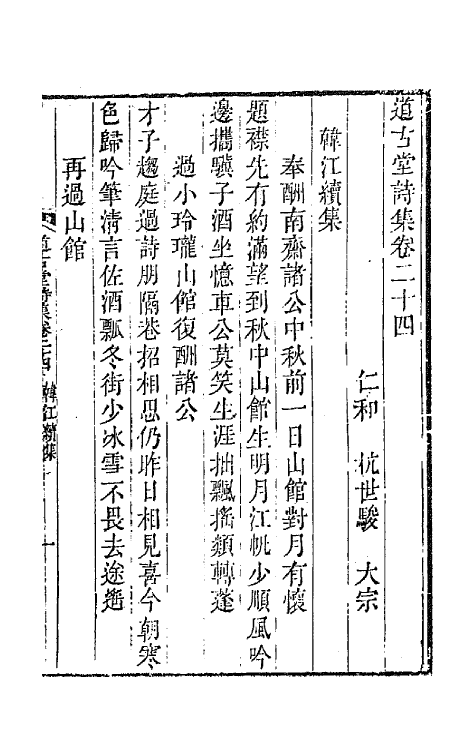 道古堂詩集卷二十四
仁和 杭世駿 大宗
韓江續集
奉酬南齋諸公中秋前一日山館對月有懷
題襟先有約滿望到秋中山館生明月江帆少順風吟
邊攜驥子酒坐憶車公莫笑生涯拙飄搖類轉蓬
過小玲瓏山館復酬諸公
才子趨庭過詩朋隔巷招相思仍昨日相見喜今朝寒
色歸吟筆清言佐酒瓢冬街少冰雪不畏去途遙
再過山館
道古堂詩集卷二十四 韓江續集 一